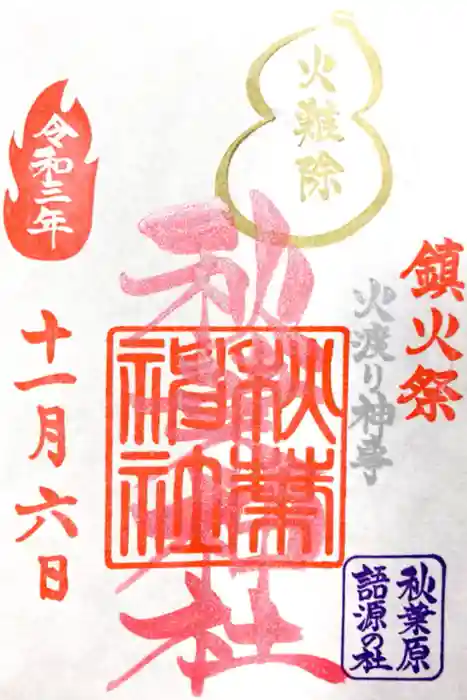 鎮火祭
火渡り神事
火難除
秋葉神社
秋葉
神社
令和三年
十一月六日
秋葉原
語源の社